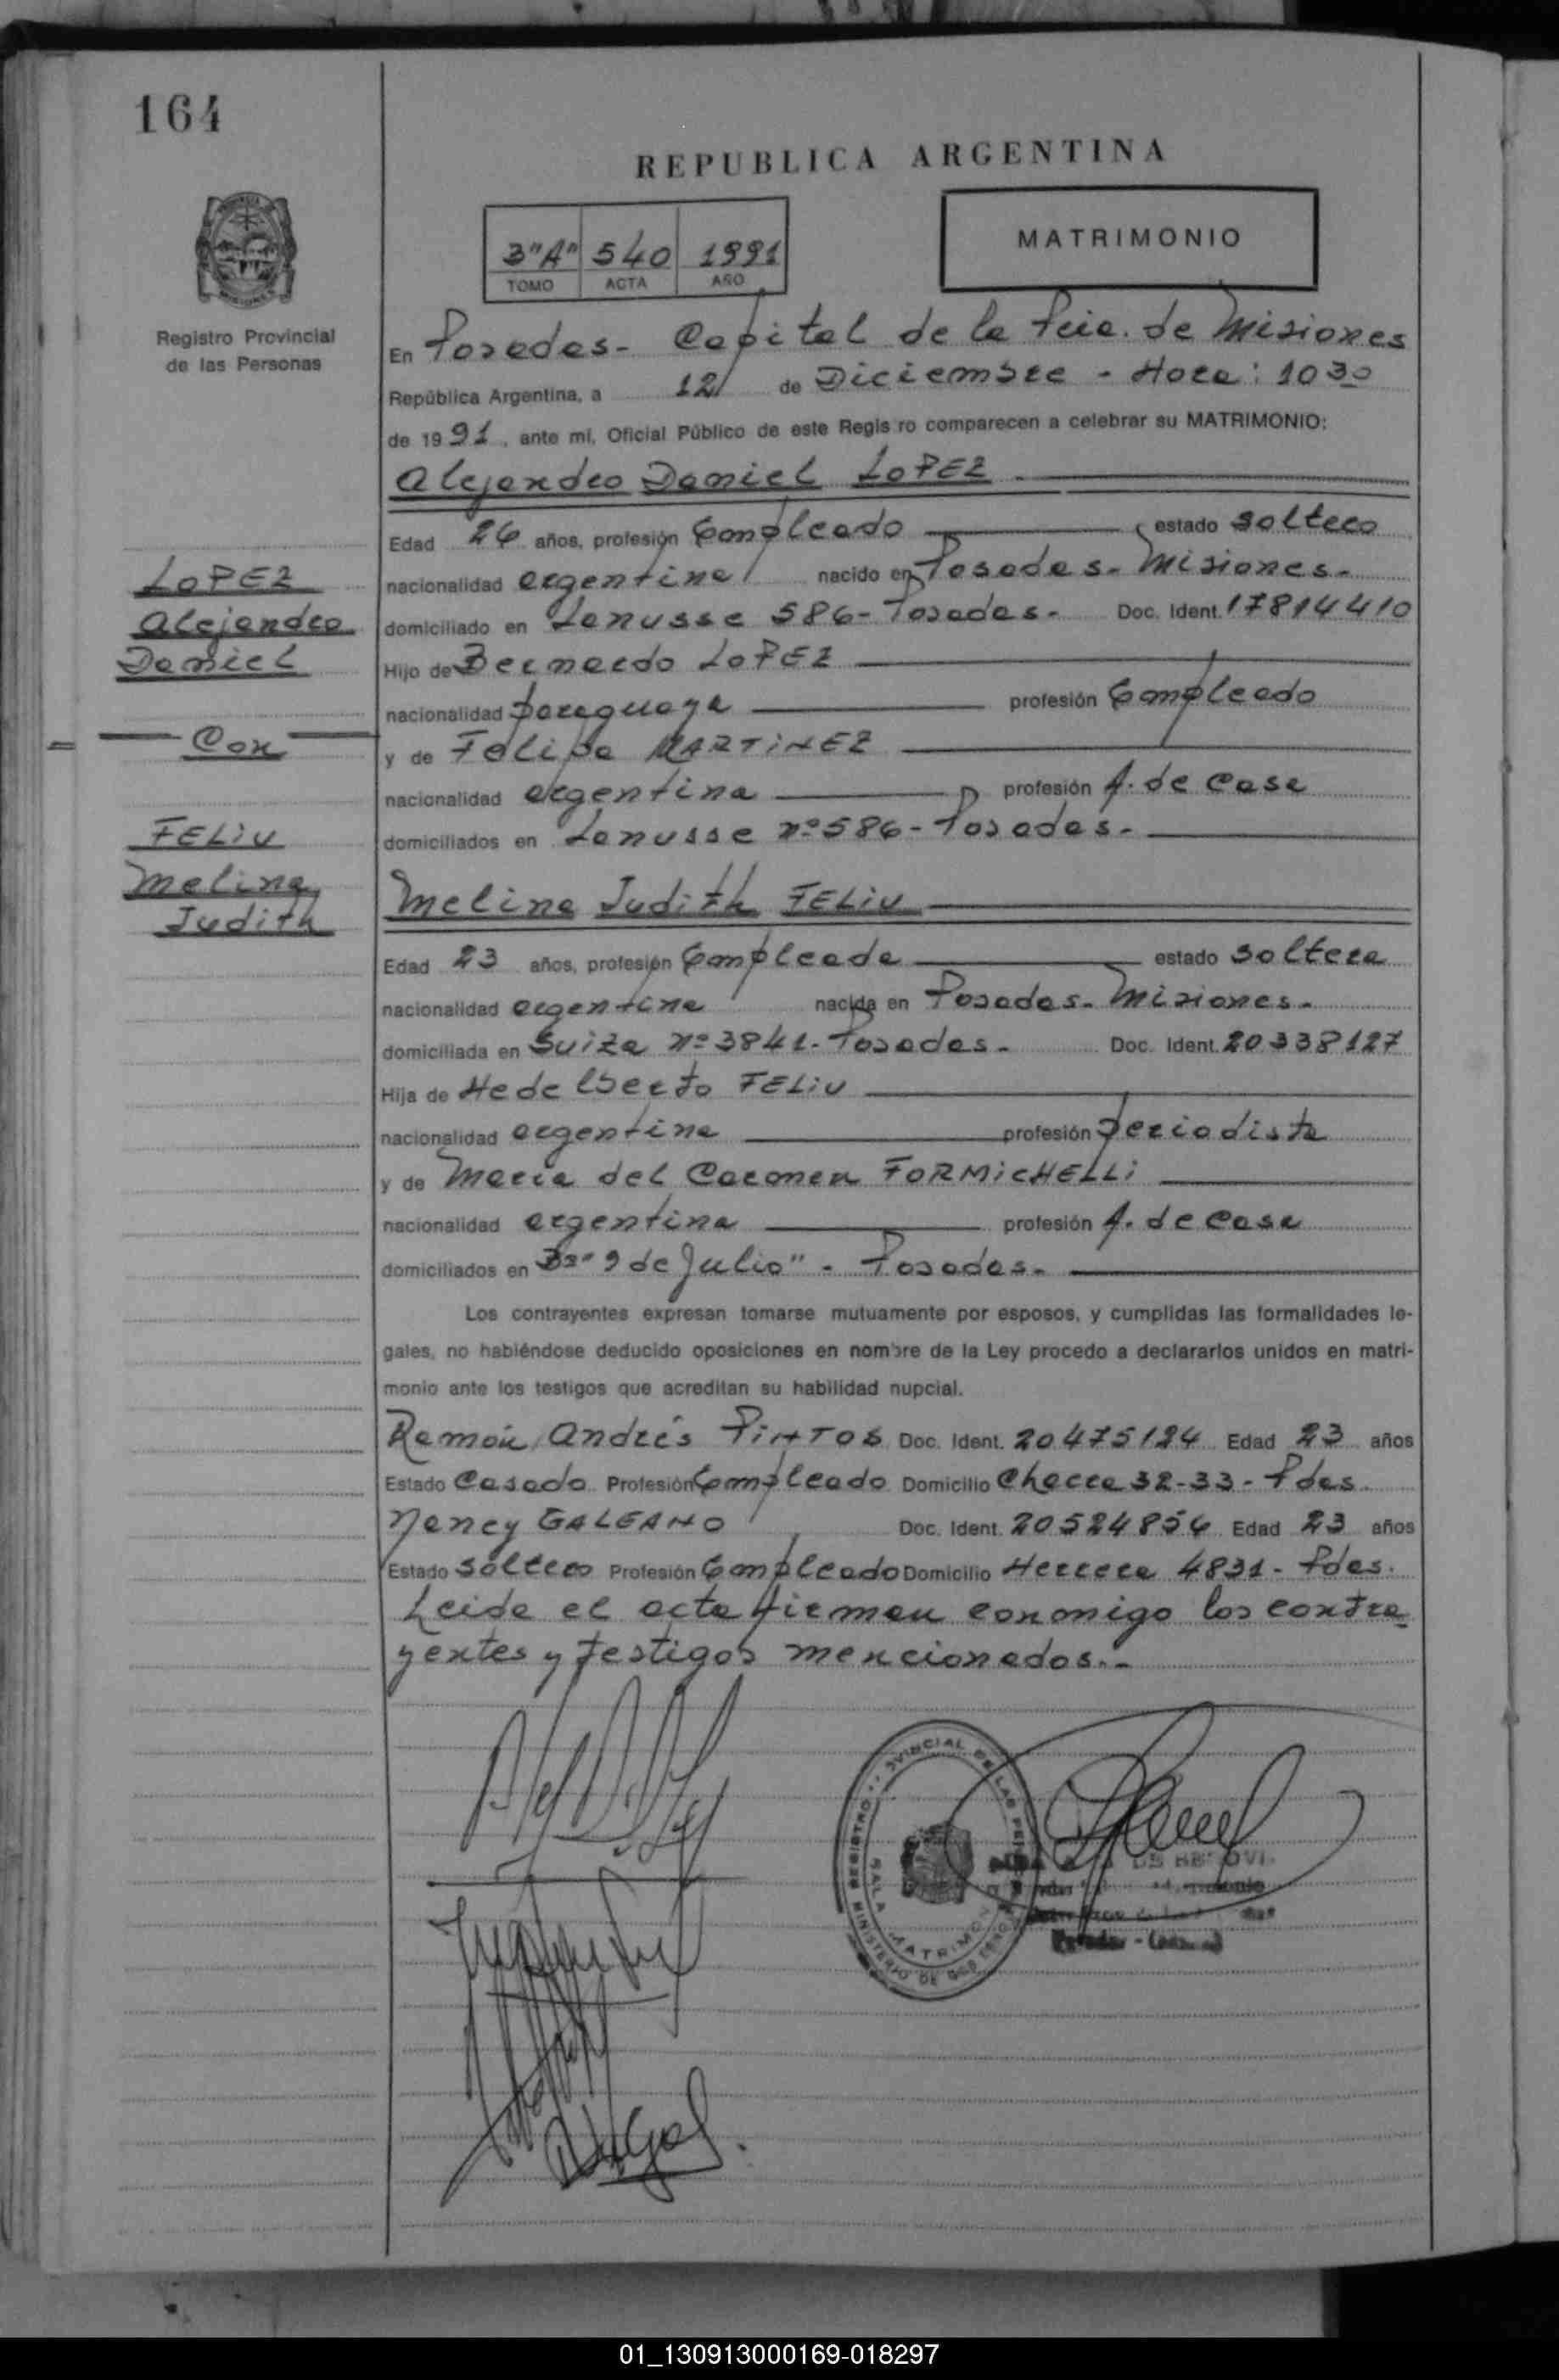 164
REPUBLICA ARGENTINA
3"A" 540 1991
TOMO ACTA AÑO
MATRIMONIO
Registro Provincial
de las Personas
En Posadas- Capital de la Pcia. de Misiones
República Argentina, a 12 de Diciembre - Hora: 10 30
de 1991, ante mí, Oficial Público de este Regis ro comparecen a celebrar su MATRIMONIO:
Alejandro Daniel LOPEZ
Edad 26 años, profesión Empleado estado soltero
nacionalidad argentina nacido en Posadas- Misiones-
domiciliado en Lanusse 586- Posadas- Doc. Ident. 17814410
Hijo de Bernardo LOPEZ
nacionalidad paraguaya profesión Empleado
y de Felipa MARTINEZ
nacionalidad argentina profesión A. de casa
domiciliados en Lanusse nº 586- Posadas-
LOPEZ
Alejandro
Daniel
Con
FELIU
Melina
Judith
Melina Judith FELIU
Edad 23 años, profesión Empleada estado soltera
nacionalidad argentina nacida en Posadas- Misiones-
domiciliada en Suiza nº 3841- Posadas- Doc. Ident. 20338127
Hija de Hedelberto FELIU
nacionalidad argentina profesión periodista
y de Maria del Carmen FORMICHELLI
nacionalidad argentina profesión A. de casa
domiciliados en Bº "9 de Julio" - Posadas-
Los contrayentes expresan tomarse mutuamente por esposos, y cumplidas las formalidades le-
gales, no habiéndose deducido oposiciones en nombre de la Ley procedo a declararlos unidos en matri-
monio ante los testigos que acreditan su habilidad nupcial.
Ramón Andrés PINTOS Doc. Ident. 20475124 Edad 23 años
Estado Casado Profesión Empleado Domicilio Chacra 32-33- Pdas.
Nancy GALEANO Doc. Ident. 20524856 Edad 23 años
Estado soltero Profesión Empleado Domicilio Herrera 4831- Pdas.
Leida el acta firman conmigo los contra
yentes y testigos mencionados.-
01_130913000169-018297